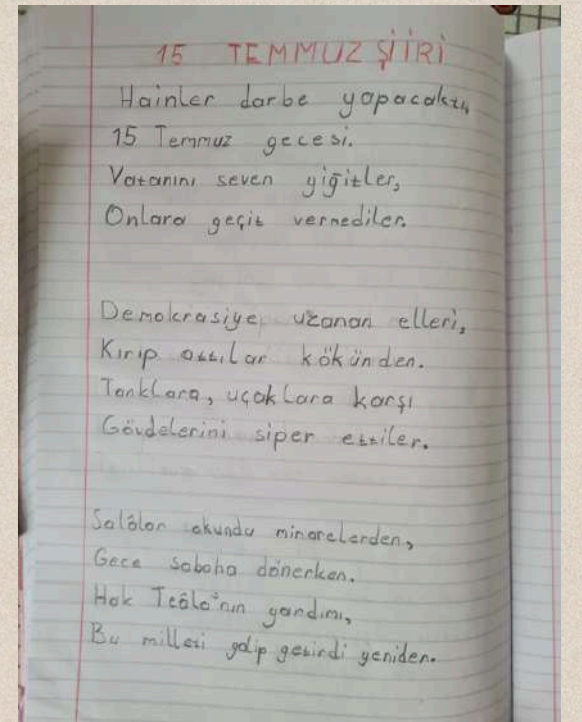 15 TEMMUZ ŞİİRİ
Hainler darbe yapacaktı,
15 Temmuz gecesi.
Vatanını seven yiğitler,
Onlara geçit vermediler.
Demokrasiye uzanan elleri,
Kırıp attılar kökünden.
Tanklara, uçaklara karşı
Gövdelerini siper ettiler.
Salâlar okundu minarelerden,
Gece sabaha dönerken.
Hak Teâlâ'nın yardımı,
Bu milleti galip getirdi yeniden.